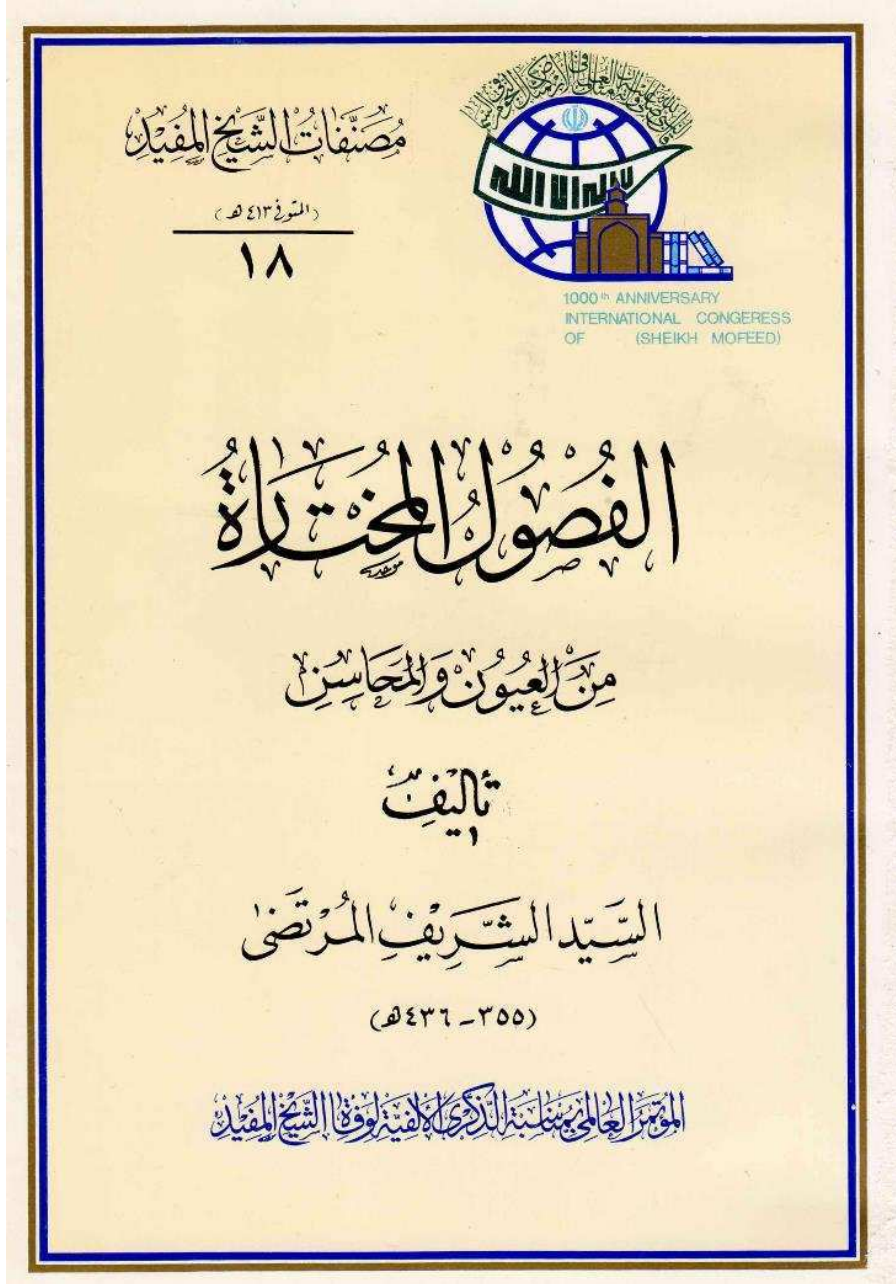 مُصَنَّفَاتُ الشَّيْخِ المُفِيْدِ
(المتوفى ٤١٣ هـ)
١٨
لا إله إلا الله
1000th ANNIVERSARY
INTERNATIONAL CONGERESS
OF (SHEIKH MOFEED)
الفُصُوْلُ المُخْتَارَةُ
مِنَ العُيُوْنِ وَالمَحَاسِنِ
تأليفُ
السَّيِّد الشَّرِيْفِ المُرْتَضىٰ
(٣٥٥-٤٣٦هـ)
المُؤْتَمَرُ العَالَمِيُّ بِمُنَاسَبَةِ الذِّكْرَى الأَلْفِيَّةِ لِوَفَاةِ الشَّيْخِ المُفِيْدِ